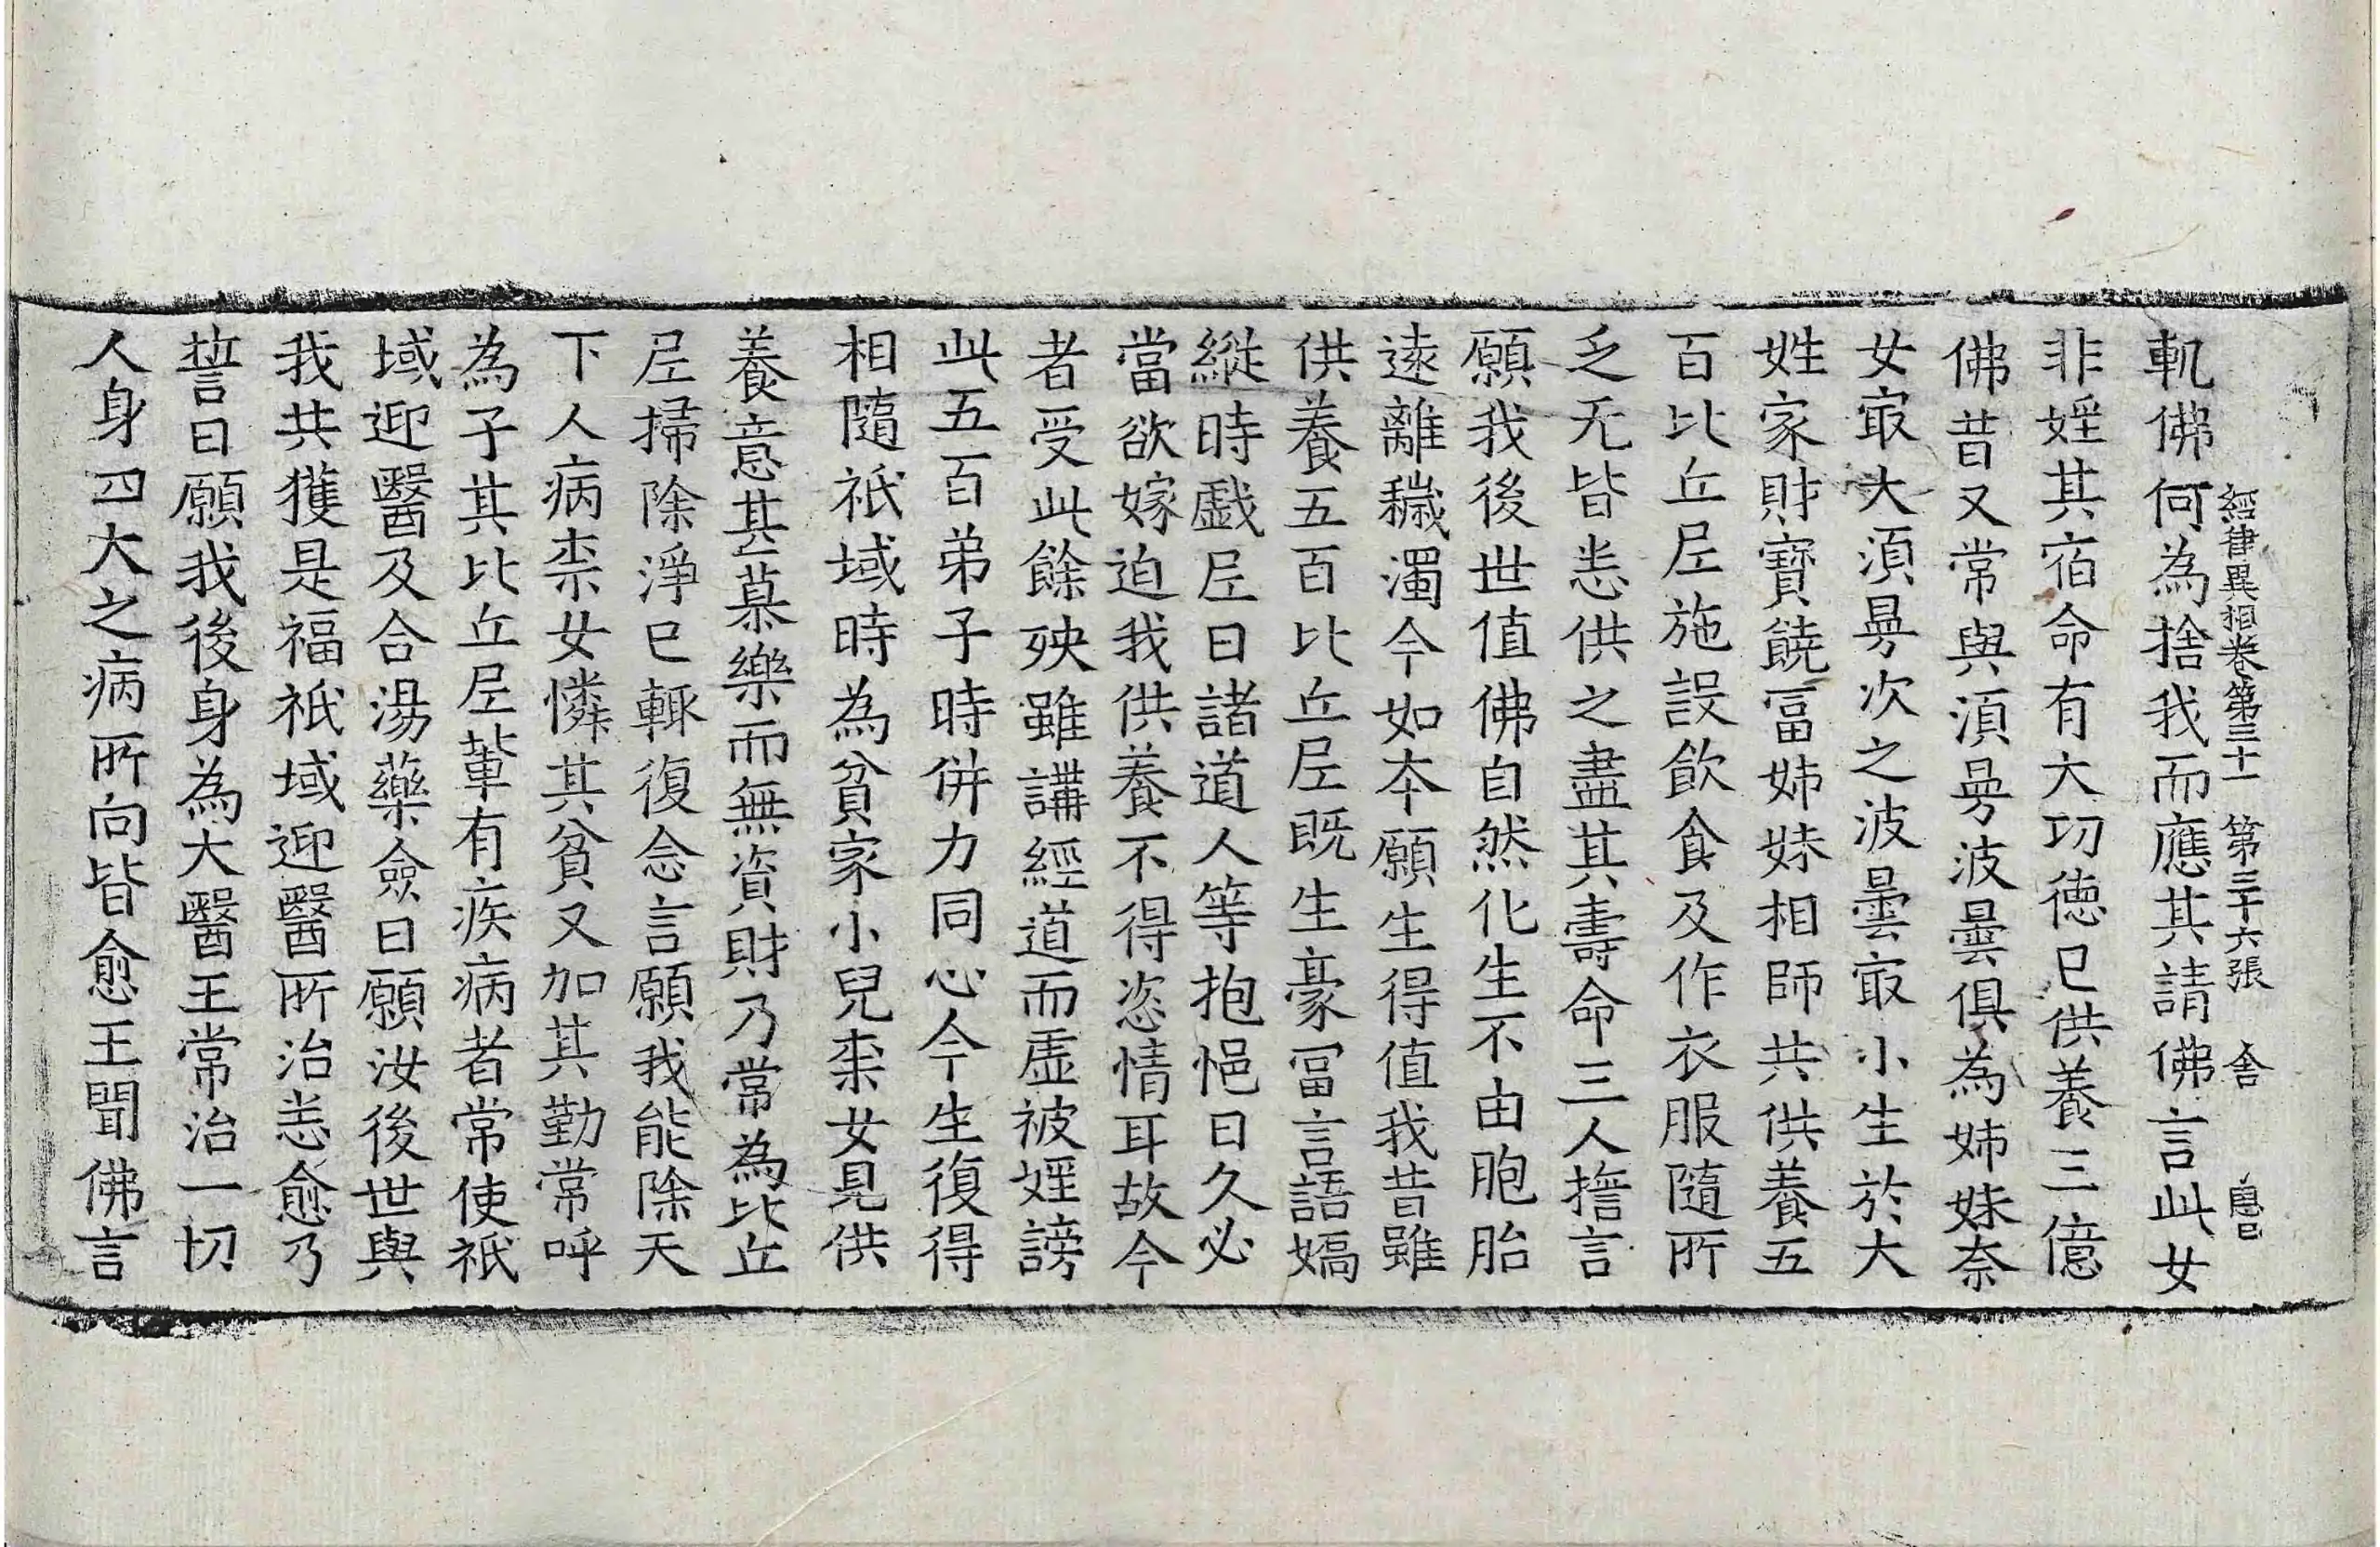 軓佛何為捨我而應其請佛言此女
經律異相卷第三十一　第三十六張　舍
非婬其宿命有大功德已供養三億
佛昔又常與湏㝵波曇俱為姊妹奈
女㝡大湏㝵次之波曇㝡小生於大
姓家財寶饒冨姊妹相師共供養五
百比丘尼施設飲食及作衣服隨所
乏无皆恙供之盡其壽命三人擔言
願我後世值佛自然化生不由胞胎
遠離穢濁今如本願生得值我昔雖
供養五百比丘尼既生豪冨言語嬌
縱時戯尼曰諸道人等抱悒日久必
當欲嫁迫我供養不得恣情耳故今
者受此餘殃雖講經道而虛被婬謗
此五百弟子時併力同心今生復得
相隨祇域時為貧家小兒柰女見供
養意甚慕樂而無資財乃常為比丘
尼掃除淨已輙復念言願我能除天
下人病柰女憐其貧又加其勤常呼
為子其比丘尼軰有疾病者常使祇
域迎醫及合湯藥僉曰願汝後世與
我共獲是福祇域迎醫所治恙愈乃
誓曰願我後身為大醫王常治一切
人身四大之病所向皆愈王聞佛言